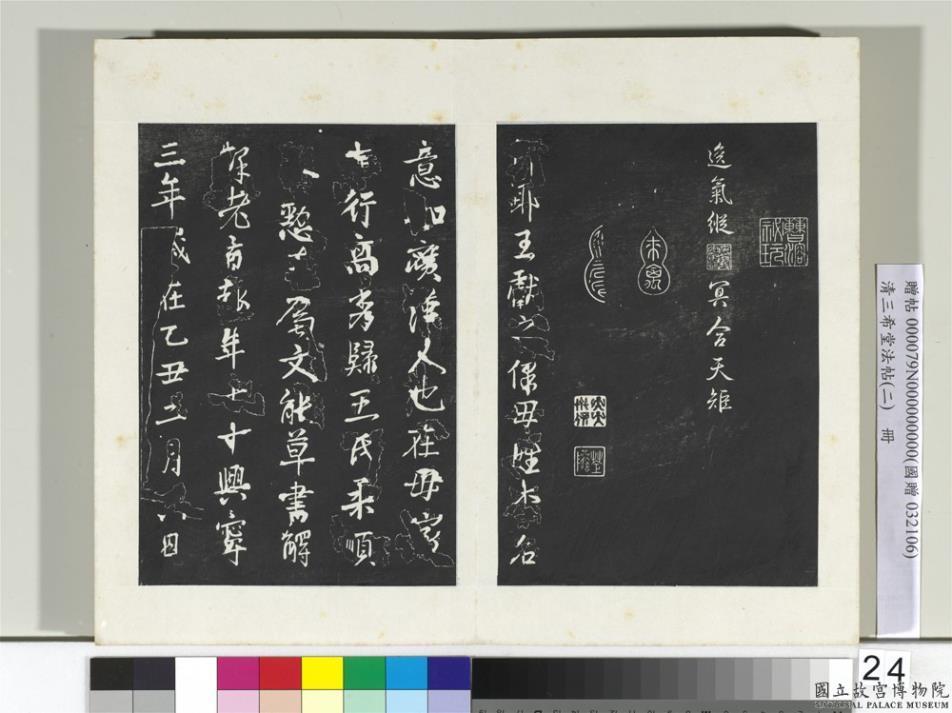 逸氣縱
冥合天矩
曹溶
祕玩
耶王獻之保母姓李名
意如廣漢人也在母家
志行高秀歸王氏柔順
恭懃善屬文能草書解
釋老旨趣年七十興寧
三年歲在乙丑二月六日
贈帖 000079N000000000(國贈 032106)
清三希堂法帖(二) 冊
24
國立故宮博物院
NATIONAL PALACE MUSEUM